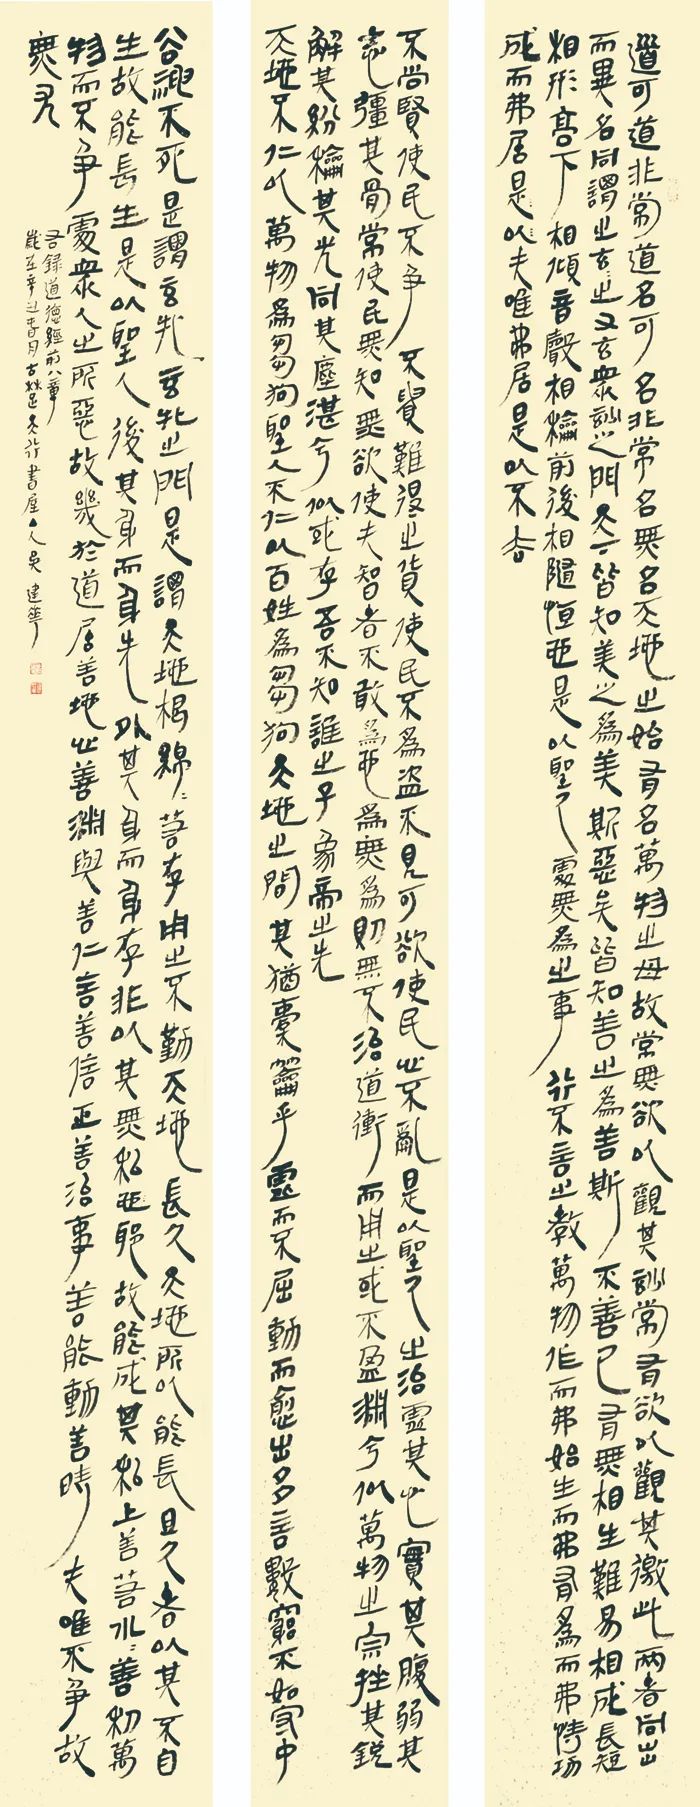 道可道非常道名可名非常名無名天地之始有名萬物之母故常無欲以觀其妙常有欲以觀其徼此兩者同出
而異名同謂之玄之又玄眾妙之門天下皆知美之為美斯惡矣皆知善之為善斯不善已有無相生難易相成長短
相形高下相傾音聲相和前後相隨恒也是以聖人處無為之事行不言之教萬物作而弗始生而弗有為而弗恃功
成而弗居是以夫唯弗居是以不去
不尚賢使民不爭不貴難得之貨使民不為盜不見可欲使民心不亂是以聖人之治虛其心實其腹弱其
志彊其骨常使民無知無欲使夫智者不敢為也為無為則無不治道沖而用之或不盈淵兮似萬物之宗挫其銳
解其紛和其光同其塵湛兮似或存吾不知誰之子象帝之先
天地不仁以萬物為芻狗聖人不仁以百姓為芻狗天地之間其猶橐籥乎虛而不屈動而愈出多言數窮不如守中
谷神不死是謂玄牝玄牝之門是謂天地根綿〻若存用之不勤天地長久天地所以能長且久者以其不自
生故能長生是以聖人後其身而身先外其身而身存非以其無私也耶故能成其私上善若水〻善利萬
物而不爭處眾人之所惡故幾於道居善地心善淵與善仁言善信正善治事善能動善時夫唯不爭故
無尤
右錄道德經前八章
歲在辛丑春月古楚天行書屋主人吳建華